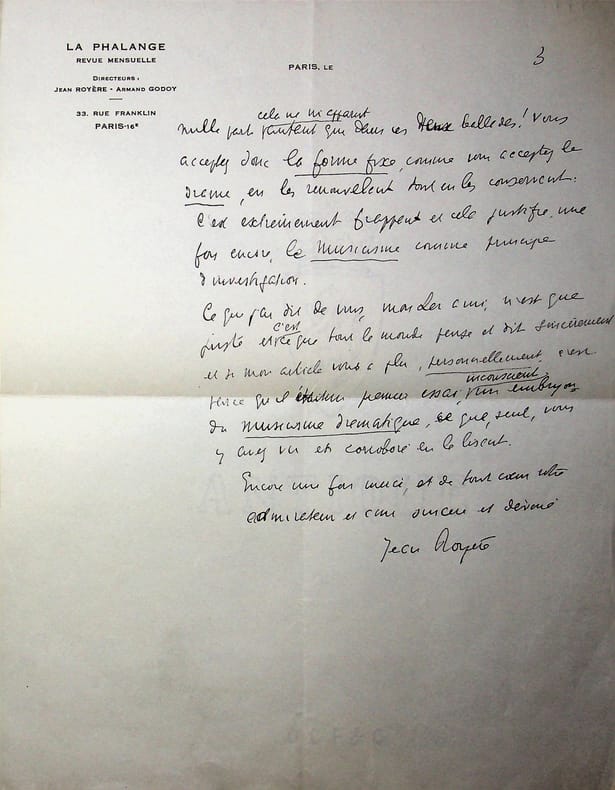 LA PHALANGE
REVUE MENSUELLE
DIRECTEURS :
JEAN ROYÈRE - ARMAND GODOY
33, RUE FRANKLIN
PARIS-16e
PARIS, LE
3
cela ne m'apparut
nulle part autant que dans ces deux ballades! Vous
acceptez donc la forme fixe, comme vous acceptez le
drame, en les renouvelant tout en les conservant.
C'est extrêmement frappant et cela justifie, une
fois encore, le musicisme comme principe
d'investigation.
Ce que j'ai dit de vous, mon cher ami, n'est que
c'est
juste et ce que tout le monde pense et dit sincèrement
et si mon article vous a plu, personnellement, c'est
inconscient
parce qu'il était un premier essai, un embryon
du musicisme dramatique, ce que, seul, vous
y avez vu et corroboré en le lisant.
Encore une fois merci, et de tout cœur votre
admirateur et ami sincère et dévoué
Jean Royère